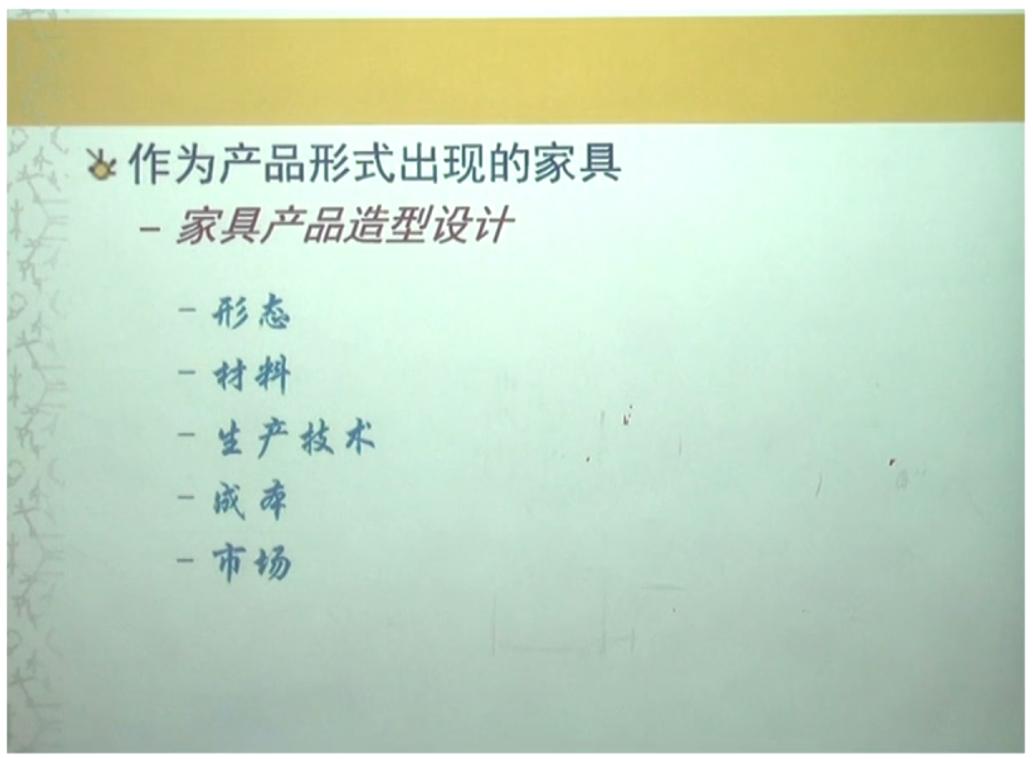 作为产品形式出现的家具
– 家具产品造型设计
– 形态
– 材料
– 生产技术
– 成本
– 市场